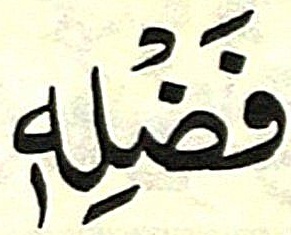 فَضْلِهٖ